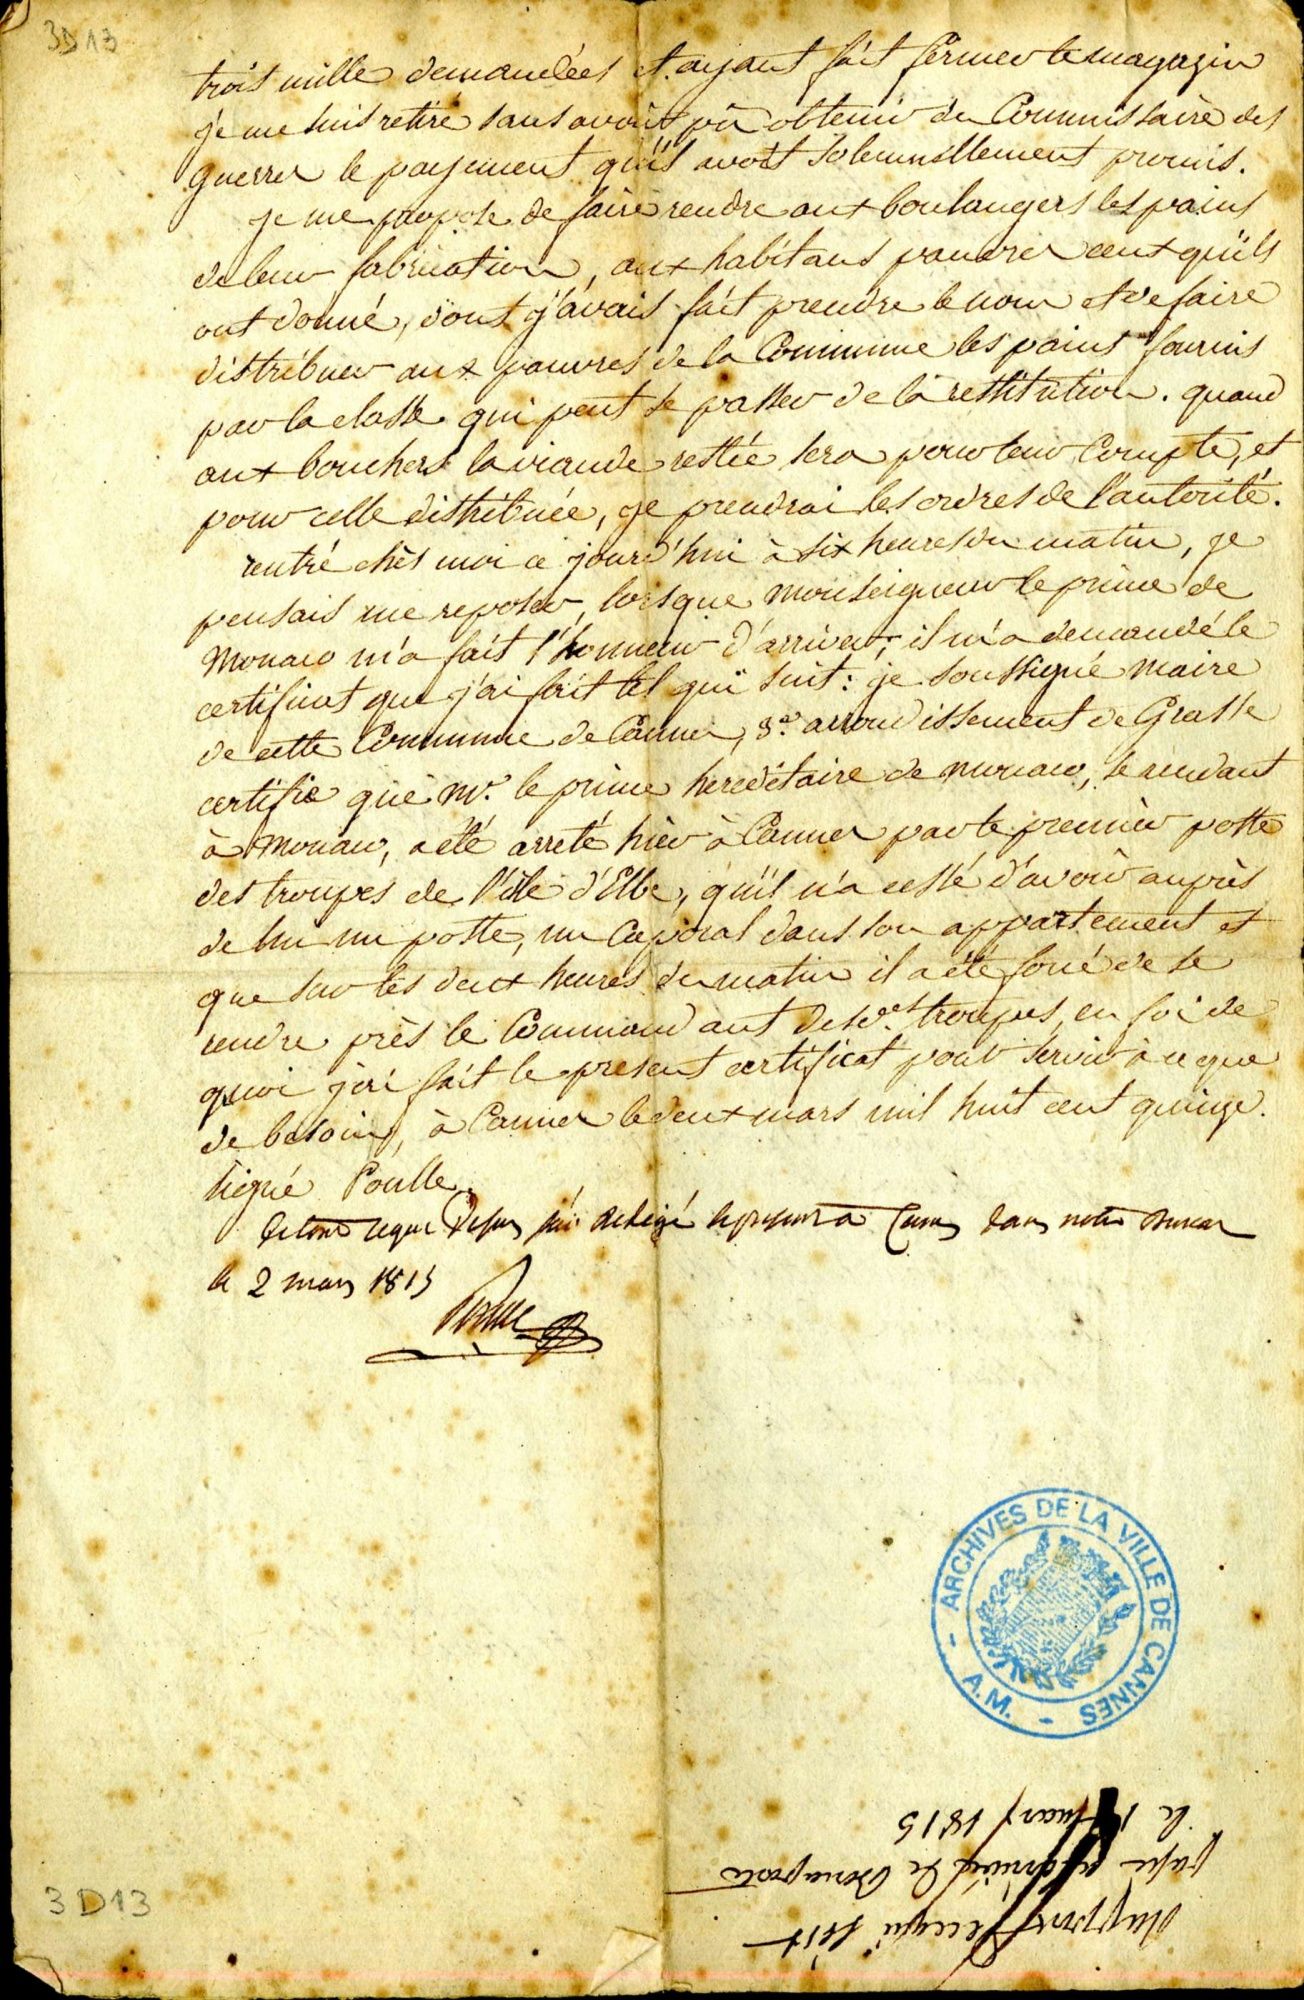 3D13
trois mille demandées et ayant fait fermer le magazin
je me suis retiré sans avoir pû obtenir du Commissaire des
guerres le payement qu'il avoit solemnellement promis.
je me propose de faire rendre aux boulangers les pains
de leur fabrication, aux habitans pauvres ceux qu'ils
ont donné, dont j'avais fait prendre le nom et de faire
distribuer aux pauvres de la Commune les pains fournis
par la classe qui peut se passer de la restitution. quand
aux bouchers la viande restée sera pour leur Compte, et
pour celle distribuée, je prendrai les ordres de l'autorité.
rentré chès moi ce jourd'hui à six heures du matin, je
pensais me reposer, lorsque Monseigneur le prince de
Monaco m'a fait l'honneur d'arriver; il m'a demandé le
certificat que j'ai fait tel qui suit: je soussigné Maire
de cette Commune de Cannes, 3e. arrondissement de Grasse
certifie que Mr. le prince hereditaire de Monaco, se rendant
à Monaco, a été arreté hier à Cannes par le premier poste
des troupes de l'île d'Elbe, qu'il n'a cessé d'avoir auprès
de lui un poste, un Caporal dans son appartement et
que sur les deux heures du matin il a été forcé de se
rendre près le Commandant desdes. troupes, en foi de
quoi j'ai fait le present certificat pour servir à ce que
de besoin, à Cannes le deux mars mil huit cent quinze.
signé Poulle.
De tout ce que dessus j'ai redigé le present a Cannes dans notre Bureau
le 2 mars 1815
Poulle
ARCHIVES DE LA VILLE DE CANNES
- A.M. -
Rapport de ce qui s'est
passé a l'arrivée de Bonaparte
le 1 mars 1815
3D13